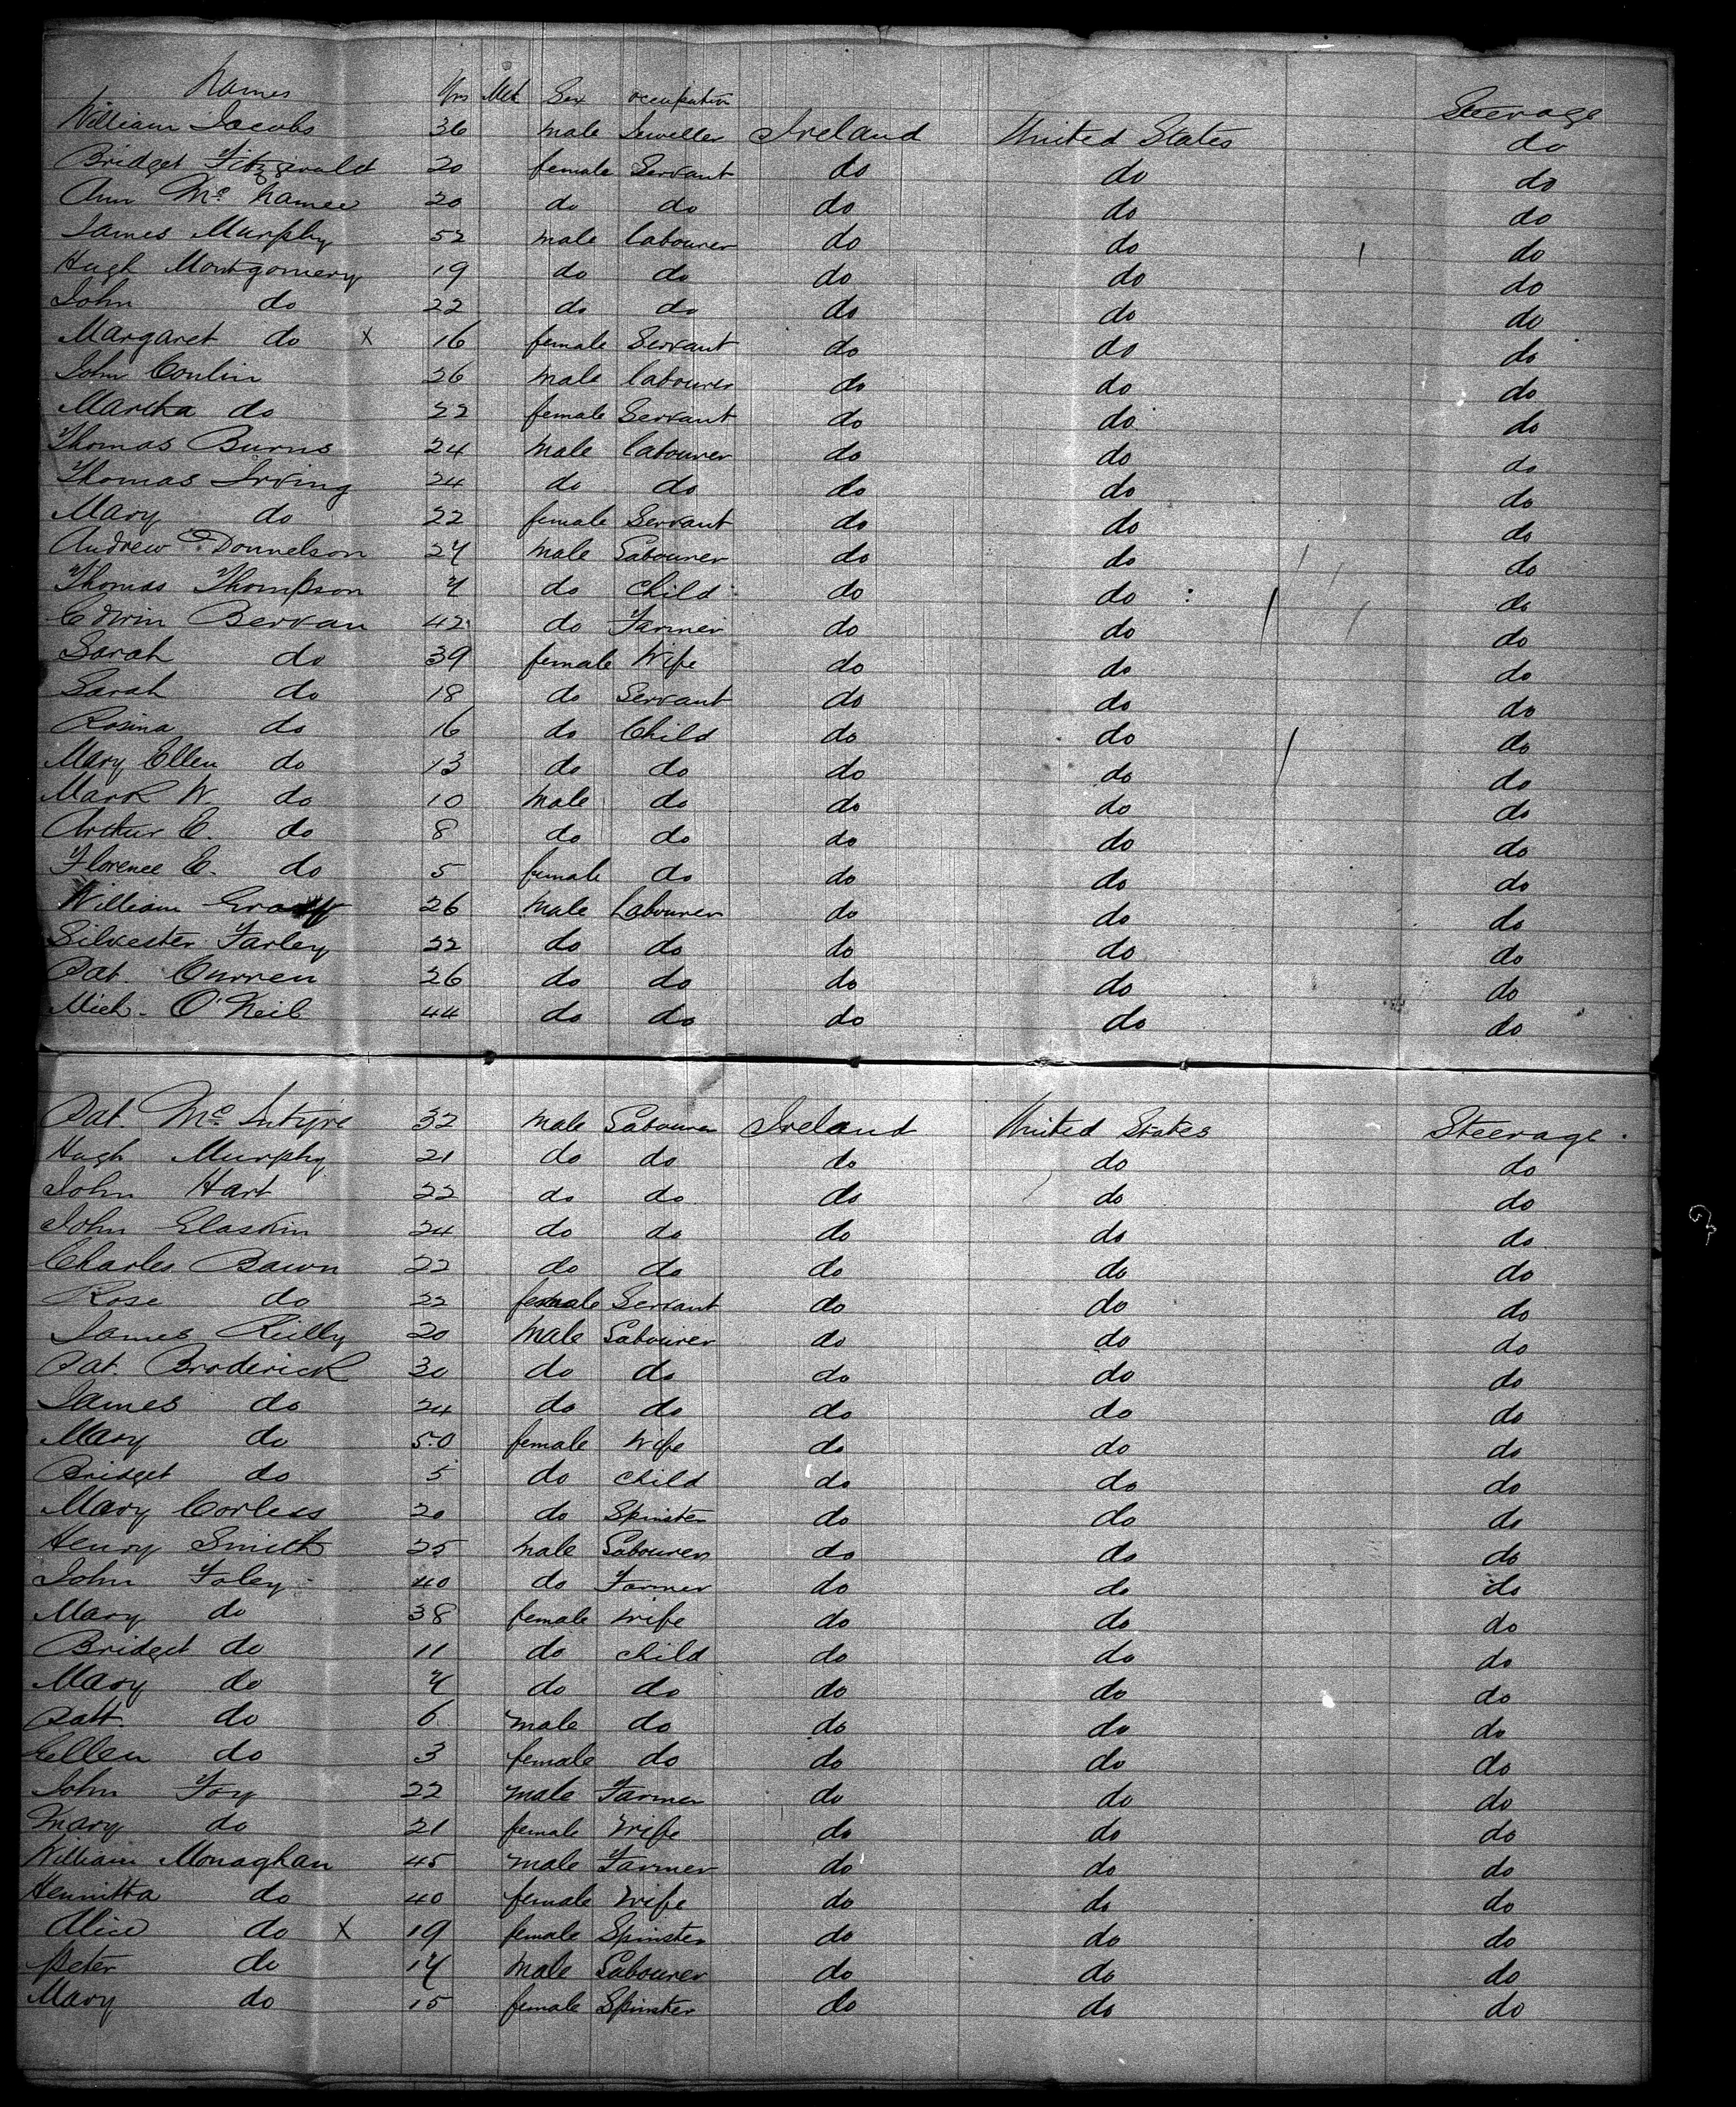 Names Yrs Mth Sex occupation Steerage
William Jacobs 36 male Jeweller Ireland United States do
Bridget Fitzgerald 20 female Servant do do do
Ann Mc Namee 20 do do do do do
James Murphy 52 male labourer do do do
Hugh Montgomery 19 do do do do do
John do 22 do do do do do
Margaret do x 16 female Servant do do do
John Conlin 26 male labourer do do do
Martha do 22 female Servant do do do
Thomas Burns 24 male labourer do do do
Thomas Irving 24 do do do do do
Mary do 22 female Servant do do do
Andrew Donnelson 27 male Labourer do do do
Thomas Thompson 7 do child do do do
Edwin Bervan 42 do Farmer do do do
Sarah do 39 female Wife do do do
Sarah do 18 do Servant do do do
Rosina do 16 do Child do do do
Mary Ellen do 13 do do do do do
Mark W. do 10 male do do do do
Arthur E. do 8 do do do do do
Florence E. do 5 female do do do do
William 26 male Labourer do do do
Silvester Farley 22 do do do do do
Pat. Curren 26 do do do do do
Mich. O'Neil 44 do do do do do
Pat. Mc Intyre 32 male Labourer Ireland United States Steerage.
Hugh Murphy 21 do do do do do
John Hart 22 do do do do do
John Glaskin 24 do do do do do
Charles Bawn 22 do do do do do
Rose do 22 female Servant do do do
James Reilly 20 male Labourer do do do
Pat. Broderick 30 do do do do do
James do 24 do do do do do
Mary do 50 female Wife do do do
Bridget do 5 do child do do do
Mary Corless 20 do Spinster do do do
Henry Smith 25 male Labourer do do do
John Foley 40 do Farmer do do do
Mary do 38 female wife do do do
Bridget do 11 do child do do do
Mary do 7 do do do do do
Patt. do 6 male do do do do
Ellen do 3 female do do do do
John Foy 22 male Farmer do do do
Mary do 21 female Wife do do do
William Monaghan 45 male Farmer do do do
Hennitta do 40 female wife do do do
Alice do x 19 female Spinster do do do
Peter do 17 male Labourer do do do
Mary do 15 female Spinster do do do